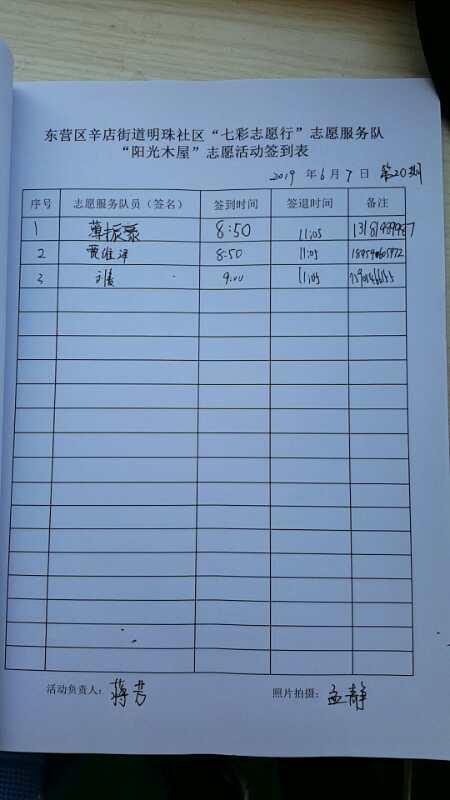 东营区辛店街道明珠社区“七彩志愿行”志愿服务队
“阳光木屋”志愿活动签到表
2019 年 6 月 7 日 第20期
序号 志愿服务队员（签名） 签到时间 签退时间 备注
1 薄振豪 8:50 11:05
2 贾维洋 8:50 11:05
3 9:00 11:05
活动负责人：蒋芳 照片拍摄：孟静